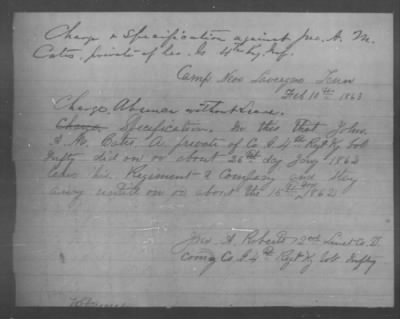 Charge & Specification against Jno. A. M.
Cates, private of Co. G 4th Ky. Inf.
Camp Near Lavergne Tenn
Feb 10th 1863
Charge, Absence without Leave.
Specification. In this that John.
A. M. Cates. A private of Co G 4th Regt Ky Vol
Infty did on or about 26th day Jany 1862
leave his Regiment & Company and stay
away untill on or about the 15th 1862
Jno. A. Roberts 2nd Lieut Co. D.
Comg Co G 4th Regt Ky Vol Infty